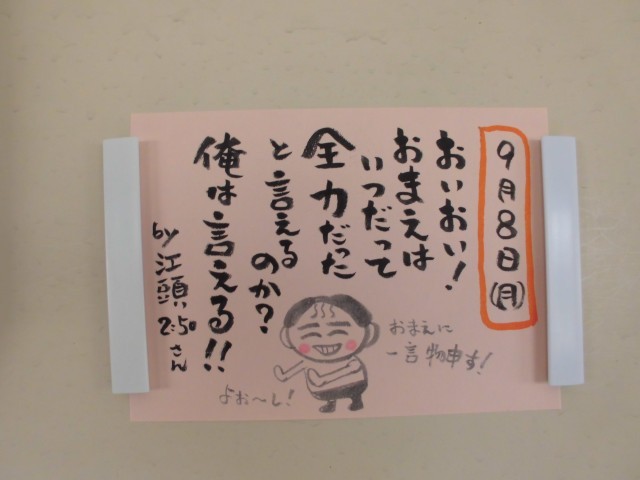 9月8日(月)
おいおい!
おまえは
いつだって
全力だった
と言える
のか?
俺は言える!!
by 江頭2:50さん
おまえに
一言物申す!
よお〜し!